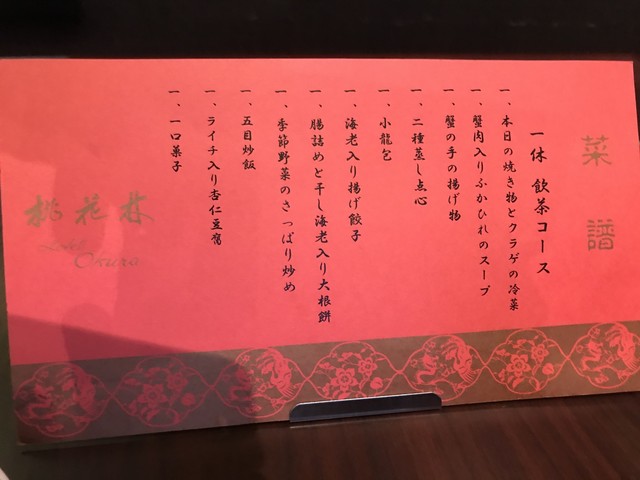 菜譜
一休 飲茶コース
一、本日の焼き物とクラゲの冷菜
一、蟹肉入りふかひれのスープ
一、蟹の手の揚げ物
一、二種蒸し点心
一、小龍包
一、海老入り揚げ餃子
一、腸詰めと干し海老入り大根餅
一、季節野菜のさっぱり炒め
一、五目炒飯
一、ライチ入り杏仁豆腐
一、一口菓子
桃花林
Okura